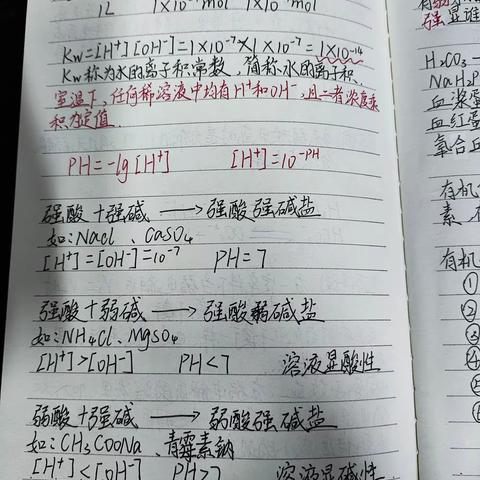 1L 1×10⁻⁷mol 1×10⁻⁷mol
Kw=[H⁺][OH⁻]=1×10⁻⁷×1×10⁻⁷=1×10⁻¹⁴
Kw称为水的离子积常数,简称水的离子积.
室温下,任何稀溶液中均有H⁺和OH⁻,且二者浓度乘
积为定值.
PH=-lg[H⁺] [H⁺]=10⁻ᴾᴴ
强酸+强碱→强酸强碱盐
如:NaCl、CaSO₄
[H⁺]=[OH⁻]=10⁻⁷ PH=7
强酸+弱碱→强酸弱碱盐
如:NH₄Cl、MgSO₄
[H⁺]>[OH⁻] PH<7 溶液显酸性
弱酸+强碱→弱酸强碱盐
如:CH₃COONa、青霉素钠
[H⁺]<[OH⁻] PH>7 溶液显碱性
强显谁
H₂CO₃-
NaH₂P
血浆蛋
血红蛋
氧合血
有机
素、
有机
①
②
③
④
⑤
⑥